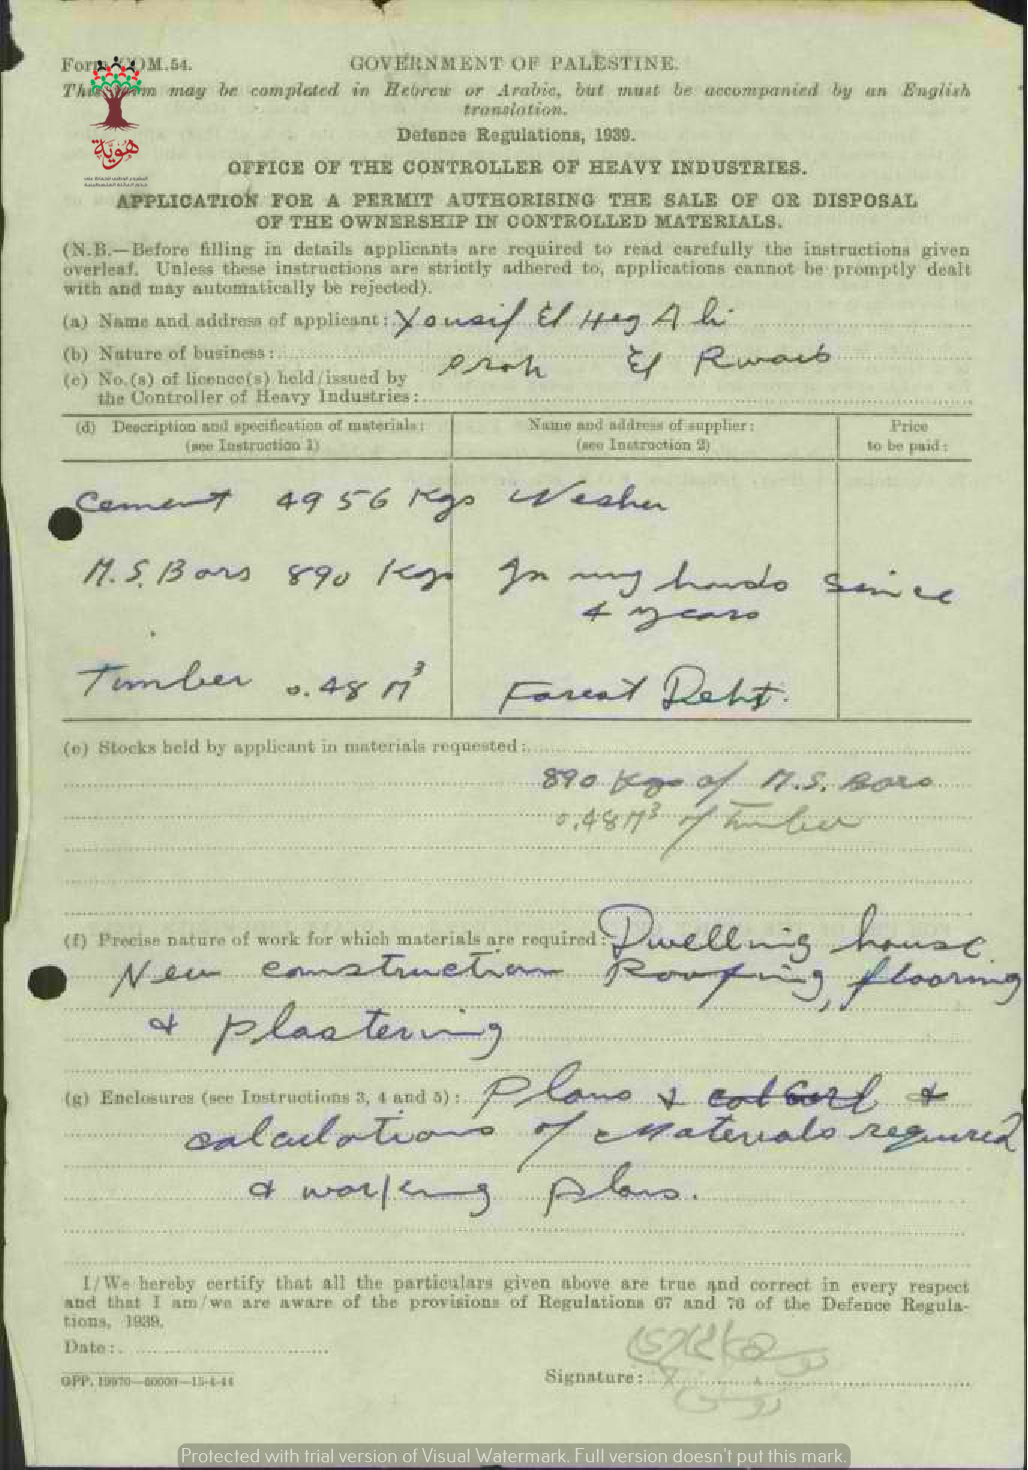 Form COM.54.
GOVERNMENT OF PALESTINE.
This form may be completed in Hebrew or Arabic, but must be accompanied by an English
translation.
Defence Regulations, 1939.
OFFICE OF THE CONTROLLER OF HEAVY INDUSTRIES.
APPLICATION FOR A PERMIT AUTHORISING THE SALE OF OR DISPOSAL
OF THE OWNERSHIP IN CONTROLLED MATERIALS.
(N.B.—Before filling in details applicants are required to read carefully the instructions given
overleaf. Unless these instructions are strictly adhered to, applications cannot be promptly dealt
with and may automatically be rejected).
(a) Name and address of applicant: Yousif El Heg Ali
(b) Nature of business:
El Rwais
(c) No.(s) of licence(s) held/issued by
the Controller of Heavy Industries:
(d) Description and specification of materials: Name and address of supplier: Price
(see Instruction 1) (see Instruction 2) to be paid:
Cement 4956 Kgs Nesher
M.S. Bars 890 Kgs In my hands since
4 years
Timber 0.48 M³ Forest Debt.
(e) Stocks held by applicant in materials requested:
890 Kgs of M.S. Bars
0.48 M³ of timber
(f) Precise nature of work for which materials are required: Dwelling house
New construction Roofing, flooring
& plastering
(g) Enclosures (see Instructions 3, 4 and 5): Plans & &
calculations of materials required
& working plans.
I/We hereby certify that all the particulars given above are true and correct in every respect
and that I am/we are aware of the provisions of Regulations 67 and 76 of the Defence Regula-
tions, 1939.
Date:
GPP. 19970—60000—15-4-44
Signature:
هوية
Protected with trial version of Visual Watermark. Full version doesn't put this mark.